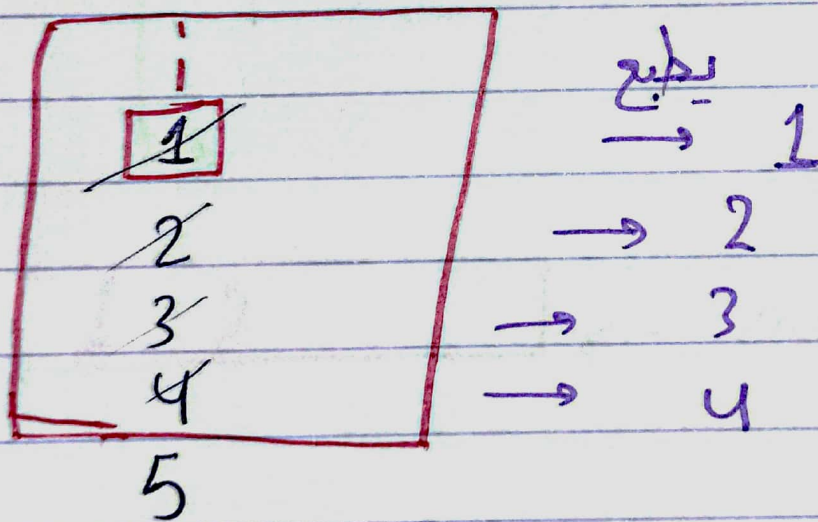 يطبع
1 → 1
2 → 2
3 → 3
4 → 4
5